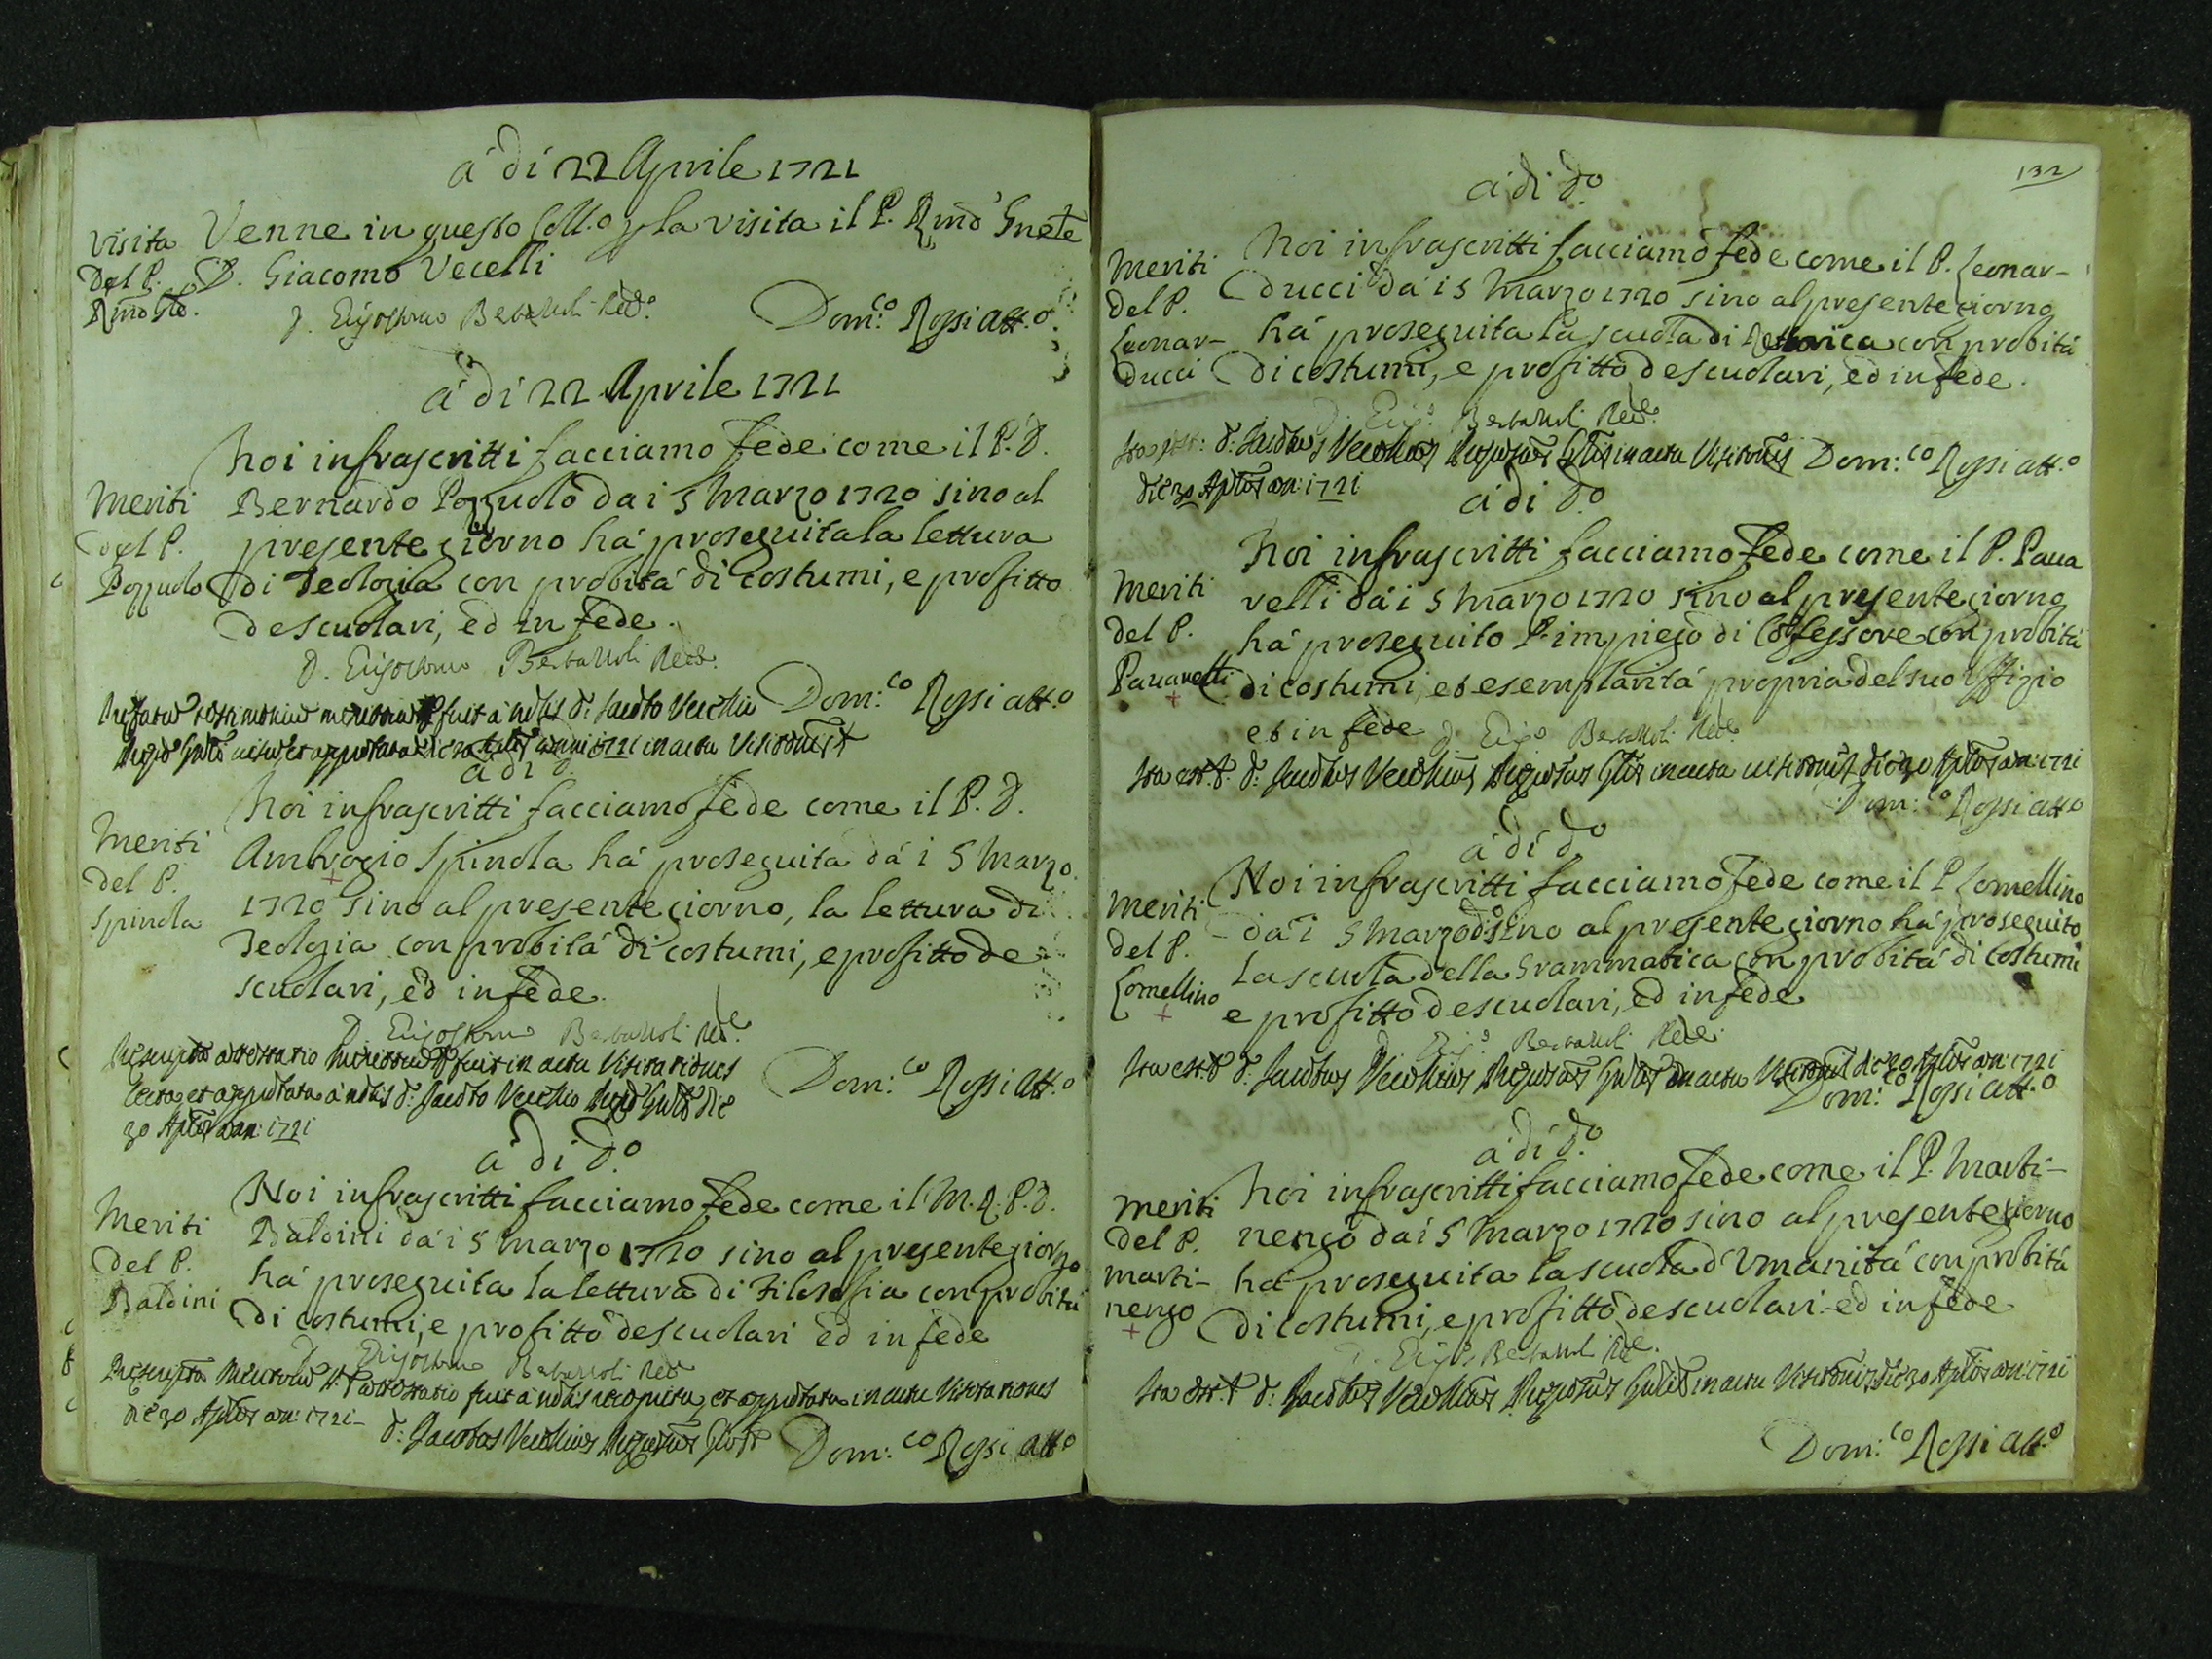 á di 22 Aprile 1721
Visita
Del P.
Rmo Gle.
Venne in questo Coll.o p la visita il P. Rmo Gnele
D. Giacomo Vecelli
D. Grisostomo Bertazzoli Re.
Dom:co Rossi att.o
á di 22 Aprile 1721
Meriti
del P.
Pozzuolo
Noi infrascritti facciamo fede come il P. D.
Bernardo Pozzuolo da i 5 Marzo 1720 sino al
presente giorno há proseguita la lettura
di Teologia con probitá di costumi, e profitto
de scuolari, ed in fede.
D. Grisostomo Bertazzoli Re.
Dom:co Rossi att.o
á di d.o
Meriti
del P.
Spinola
Noi infrascritti facciamo fede come il P. D.
Ambrogio Spinola há proseguita dá i 5 Marzo
1720 sino al presente giorno, la lettura di
Teologia con probitá di costumi, e profitto de
scuolari, ed in fede.
D. Grisostomo Bertazzoli Re.
fuit in actu Visitationis
lecta, et approbata á nobis D. Jacobo Vecellio die
30 Aplis an: 1721
Dom:co Rossi att.o
á di d.o
Meriti
Del P.
Baldini
Noi infrascritti facciamo fede come il M. R. P. D.
Baldini dá i 5 Marzo 1720 sino al presente giorno
há proseguita la lettura di Filosofia con probitá
di costumi, e profitto de scuolari ed in fede
D. Grisostomo Bertazzoli Re
fuit á nobis recognita, et approbata in actu Visitationis
die 30 Aplis an: 1721
D: Jacobus Vecellius
Dom:co Rossi att.o
132
á di d.o
Meriti
Del P.
Leonar-
ducci
Noi infrascritti facciamo fede come il P. Leonar-
ducci dá i 5 Marzo 1720 sino al presente giorno
há proseguita la scuola di Rettorica con probitá
di costumi, e profitto de scuolari, ed in fede.
D. Gris.o Bertazzoli Re.
Ita est: D. Jacobus Vecellius in actu Visitonis
die 30 Aplis an: 1721
Dom:co Rossi att.o
á di d.o
Meriti
del P.
Pauarelli
Noi infrascritti facciamo fede come il P. Paua
relli dá i 5 Marzo 1720 sino al presente giorno
há proseguito l'impiego di Cofessore con probitá
di costumi, et esemplaritá propria del suo Uffizio
et in fede
D. Gris.o Bertazzoli Re.
Ita est. D: Jacobus Vecellius in actu visitonis die 30 Aplis an: 1721
Dom:co Rossi att.o
á di d.o
Meriti
del P.
Lomellino
Noi infrascritti facciamo fede come il P. Lomellino
dá i 5 Marzo d.o sino al presente giorno há proseguito
La scuola della Grammatica con probitá di costumi
e profitto de scuolari, ed in fede
D. Gris.o Bertazzoli Re.
Ita est. D: Jacobus Vecellius in actu Visitonis die 30 Aplis an: 1721
Dom:co Rossi att.o
á di d.o
Meriti
del P.
Marti-
nengo
Noi infrascritti facciamo fede come il P. Marti-
nengo da i 5 Marzo 1720 sino al presente giorno
há proseguita la scuola d'Umanitá con probitá
di costumi, e profitto de scuolari ed in fede
D. Gris.o Bertazzoli Re.
Ita est. D: Jacobus Vecellius in actu Visitonis die 30 Aplis an: 1721
Dom:co Rossi att.o